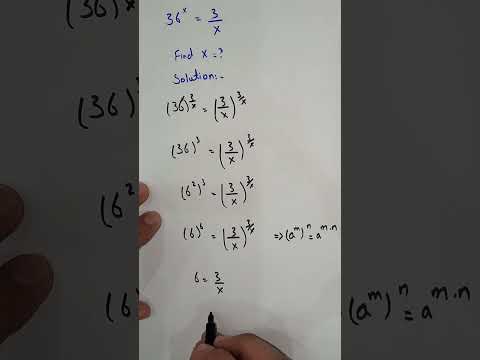 36^x = 3/x
Find x = ?
Solution:-
(36)^3/x = (3/x)^3/x
(36)^3 = (3/x)^3/x
(6^2)^3 = (3/x)^3/x
(6)^6 = (3/x)^3/x => (a^m)^n = a^m.n
6 = 3/x